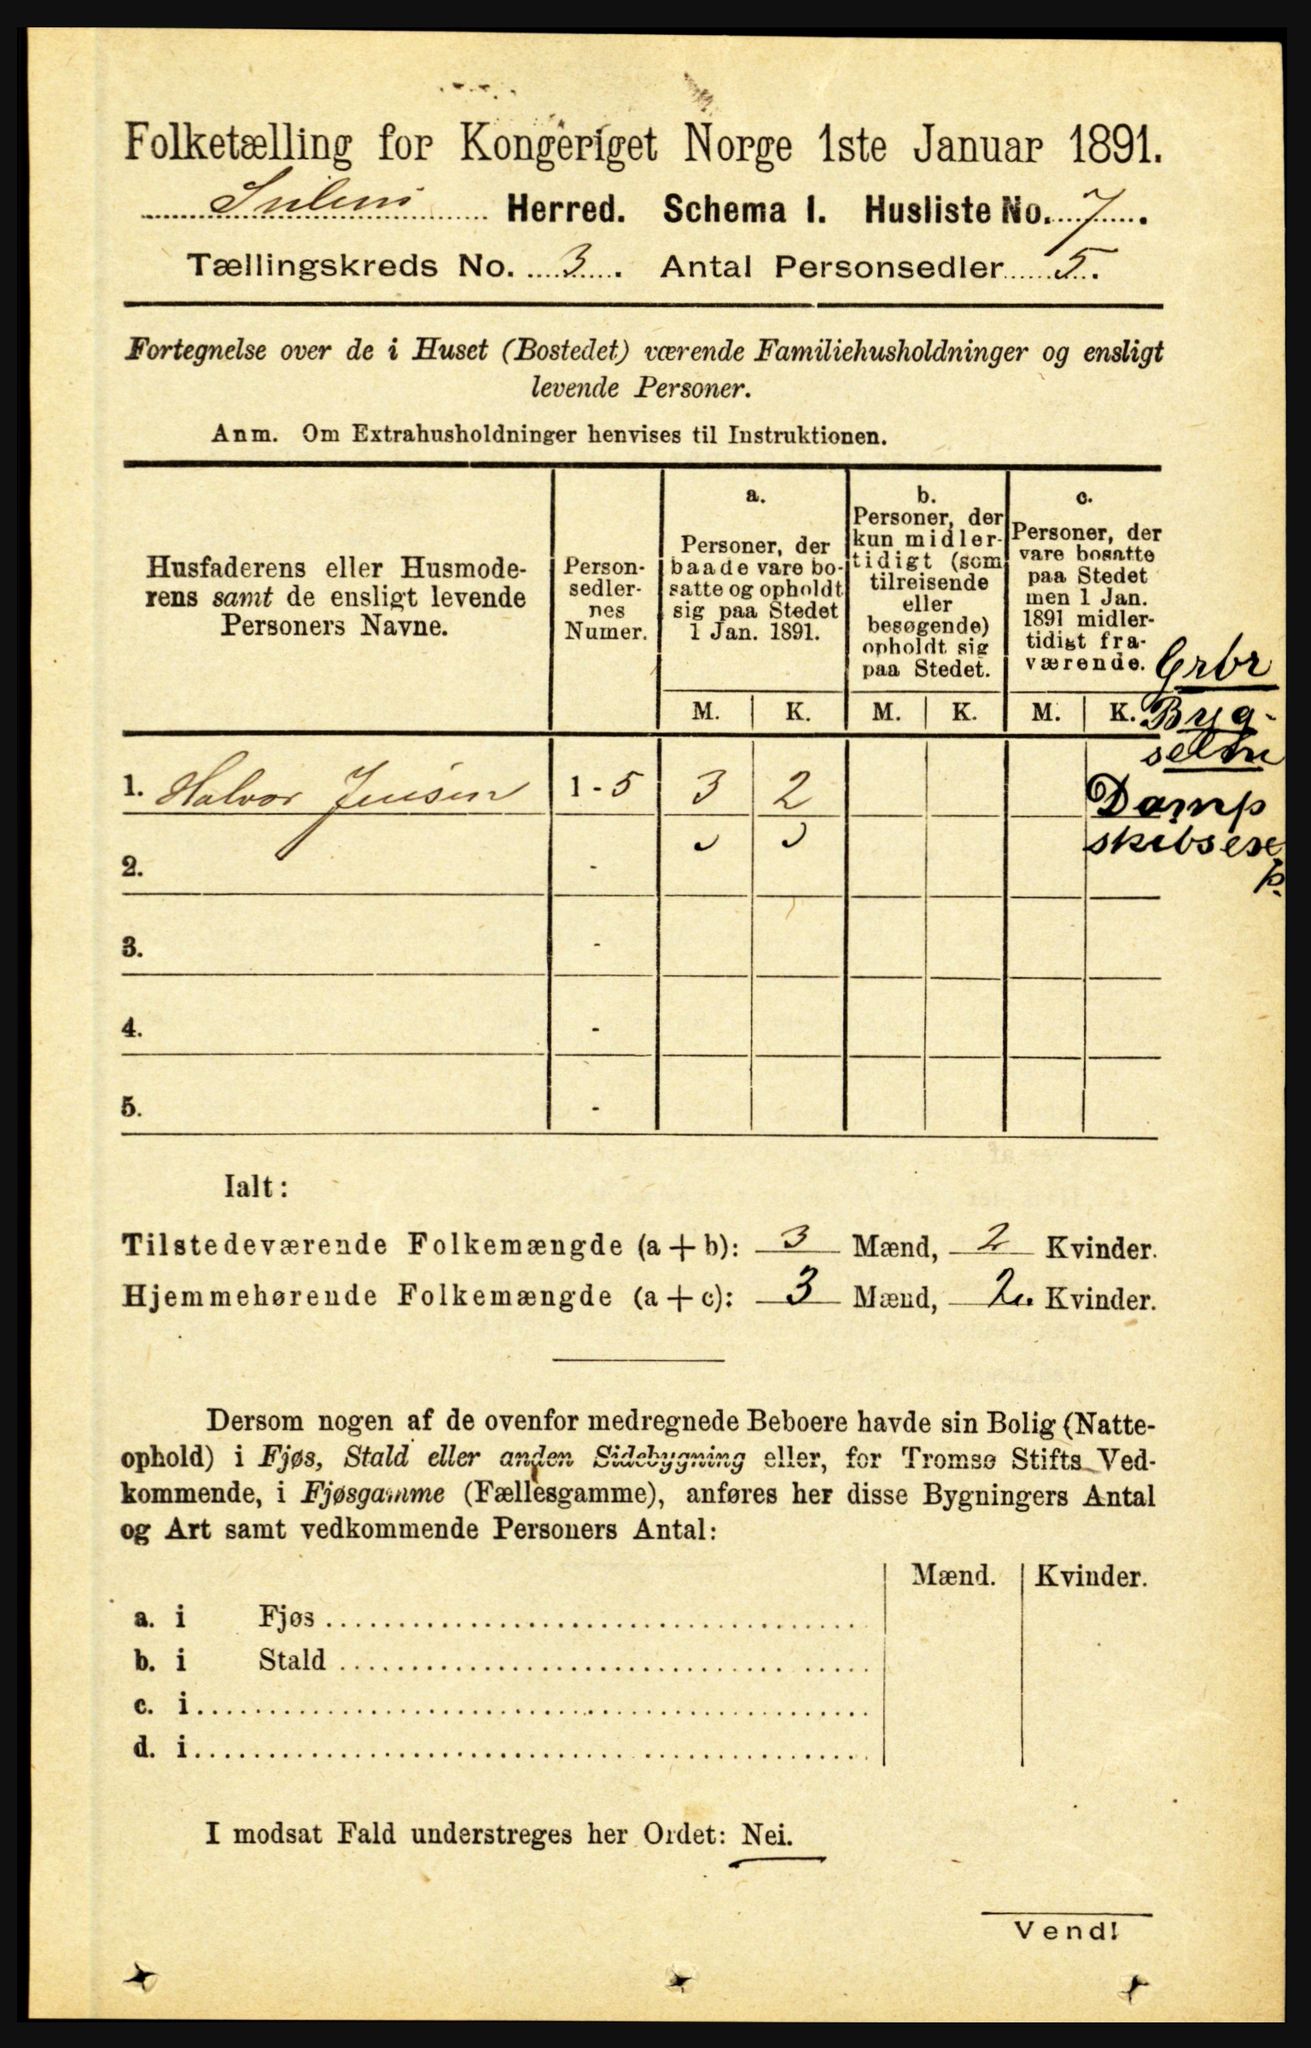 Folketælling for Kongeriget Norge 1ste Januar 1891.
Herred. Schema I. Husliste No. 7.
Tællingskreds No. 3. Antal Personsedler 5.
Fortegnelse over de i Huset (Bostedet) værende Familiehusholdninger og ensligt
levende Personer.
Anm. Om Extrahusholdninger henvises til Instruktionen.
Husfaderens eller Husmode-
rens samt de ensligt levende
Personers Navne.
Person-
sedler-
nes
Numer.
a.
Personer, der
baade vare bo-
satte og opholdt
sig paa Stedet
1 Jan. 1891.
b.
Personer, der
kun midler-
tidigt (som
tilreisende
eller
besøgende)
opholdt sig
paa Stedet.
c.
Personer, der
vare bosatte
paa Stedet
men 1 Jan.
1891 midler-
tidigt fra-
værende.
M. K. M. K. M. K.
Grbr
Byg-
selbr
Damp
skibsexp.
1. Halvor Jensen 1 - 5 3 2
2. -
3. -
4. -
5. -
Ialt:
Tilstedeværende Folkemængde (a + b): 3 Mænd, 2 Kvinder.
Hjemmehørende Folkemængde (a + c): 3 Mænd, 2 Kvinder.
Dersom nogen af de ovenfor medregnede Beboere havde sin Bolig (Natte-
ophold) i Fjøs, Stald eller anden Sidebygning eller, for Tromsø Stifts Ved-
kommende, i Fjøsgamme (Fællesgamme), anføres her disse Bygningers Antal
og Art samt vedkommende Personers Antal:
Mænd. Kvinder.
a. i Fjøs
b. i Stald
c. i
d. i
I modsat Fald understreges her Ordet: Nei.
Vend!